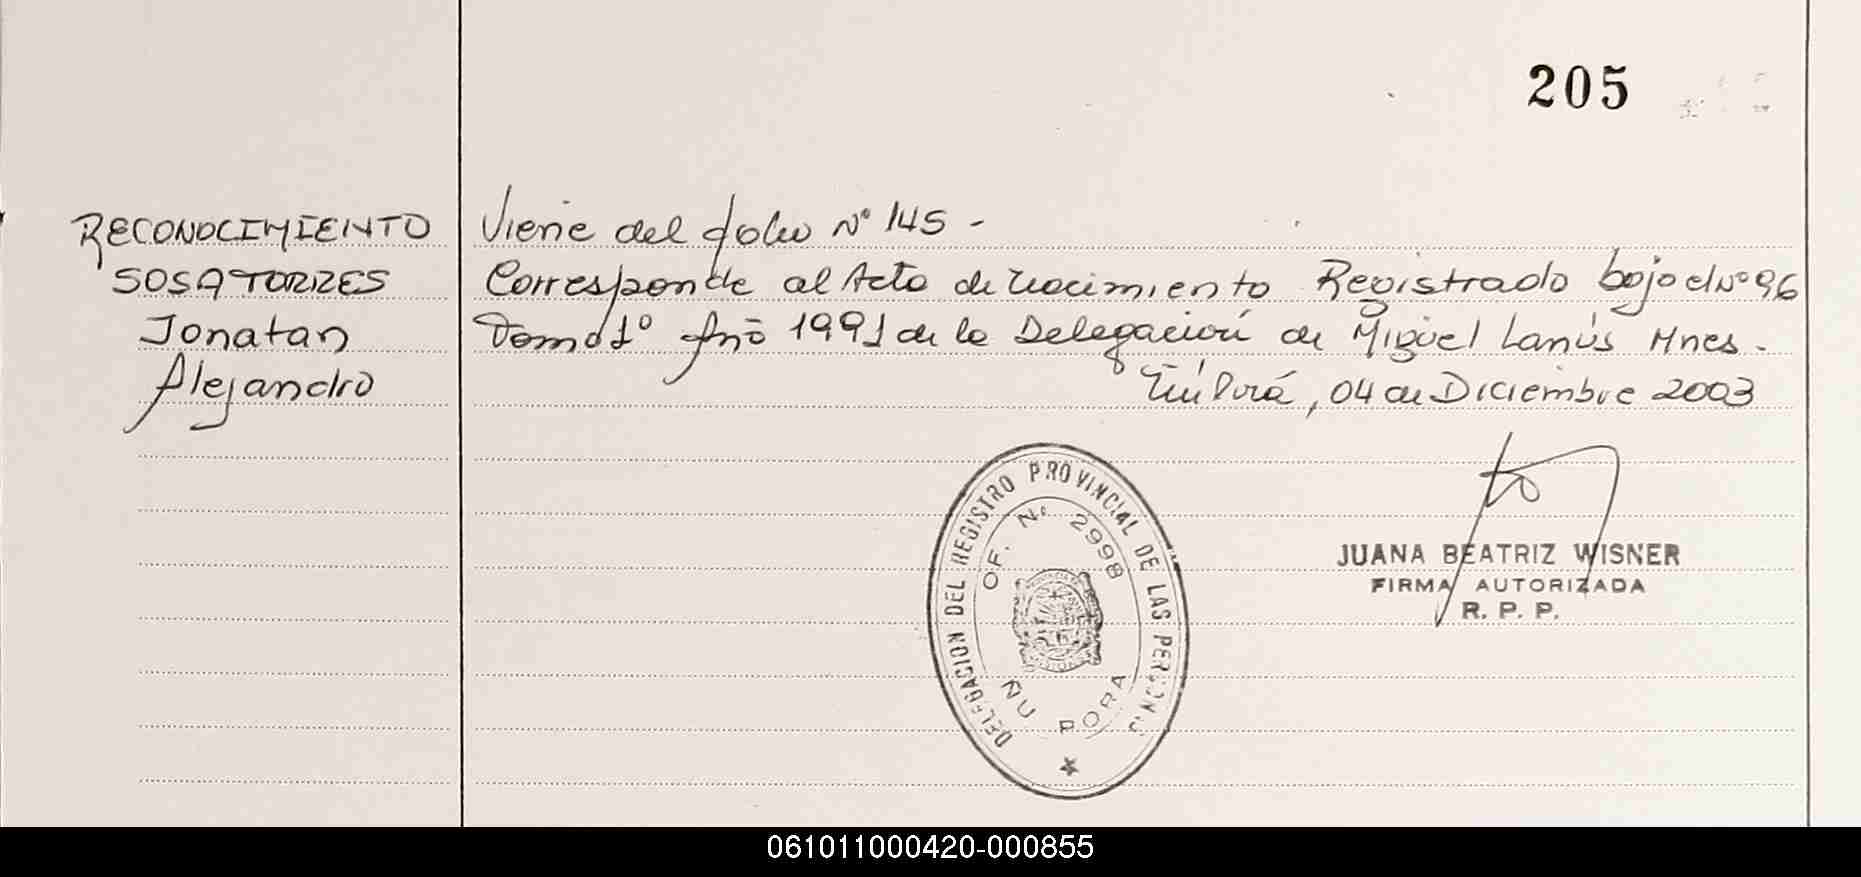 205
RECONOCIMIENTO
SOSA TORRES
Jonatan
Alejandro
Viene del folio Nº 145 -
Corresponde al Acta de nacimiento Registrado bajo el Nº 96
Tomo 1º Año 1991 de la Delegación de Miguel Lanús Mnes.
Ñú Porá, 04 de Diciembre 2003
DELEGACION DEL REGISTRO PROVINCIAL DE LAS PERSONAS
OF. Nº 2998
ÑU PORA
JUANA BEATRIZ WISNER
FIRMA AUTORIZADA
R. P. P.
061011000420-000855